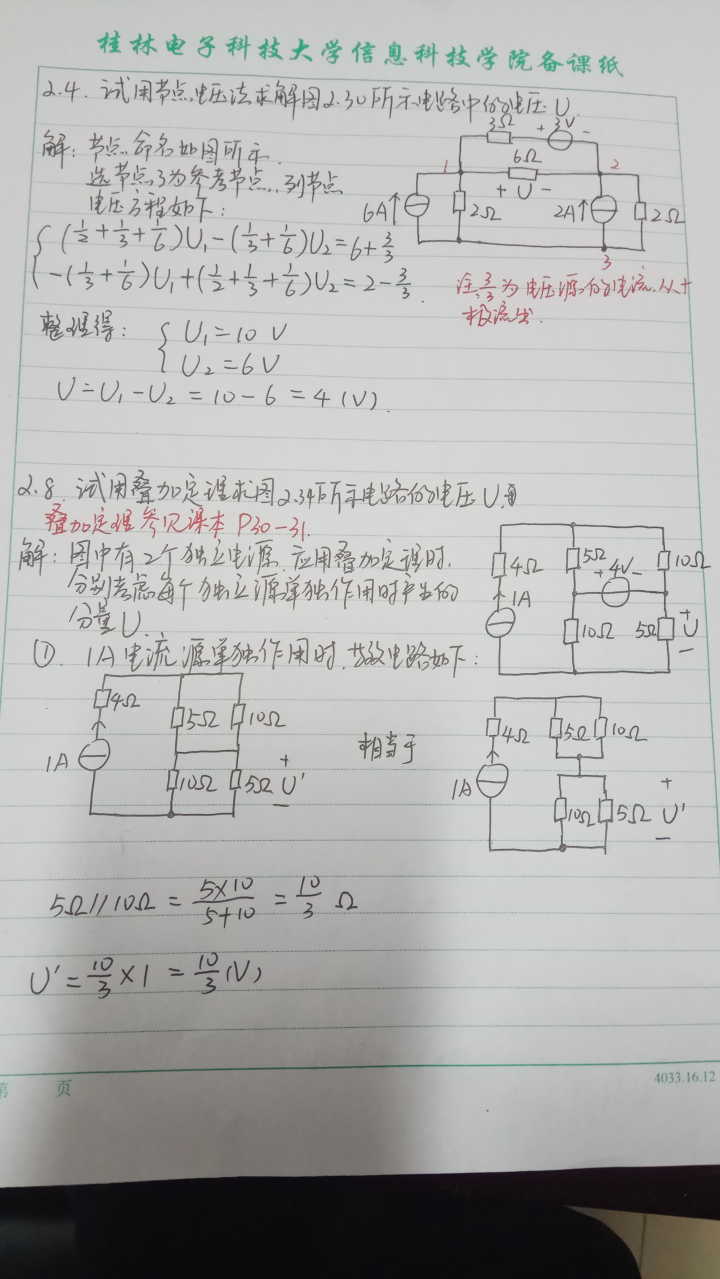 桂林电子科技大学信息科技学院备课纸
2.4. 试用节点电压法求解图2.30所示电路中的电压U.
解: 节点命名如图所示.
选节点3为参考节点, 列节点
电压方程如下:
(1/2+1/3+1/6)U₁-(1/3+1/6)U₂=6+3/3
-(1/3+1/6)U₁+(1/2+1/3+1/6)U₂=2-3/3.
3Ω + 3V -
1 6Ω 2
+ U -
6A 2Ω 2A 2Ω
3
注: 3/3 为电压源的电流.从+
极流出.
整理得: U₁=10 V
U₂=6V
U=U₁-U₂=10-6=4(V).
2.8. 试用叠加定理求图2.34所示电路的电压U.
叠加定理参见课本 P30-31.
解: 图中有2个独立电源. 应用叠加定理时.
分别考虑每个独立源单独作用时产生的
分量U.
4Ω 5Ω + 4V - 10Ω
1A
10Ω 5Ω + U -
① 1A电流源单独作用时. 等效电路如下:
4Ω 5Ω 10Ω
1A 10Ω 5Ω + U' -
相当于
4Ω 5Ω 10Ω
1A 10Ω 5Ω + U' -
5Ω//10Ω = 5×10/5+10 = 10/3 Ω
U'=10/3×1=10/3(V)
第 页
4033.16.12